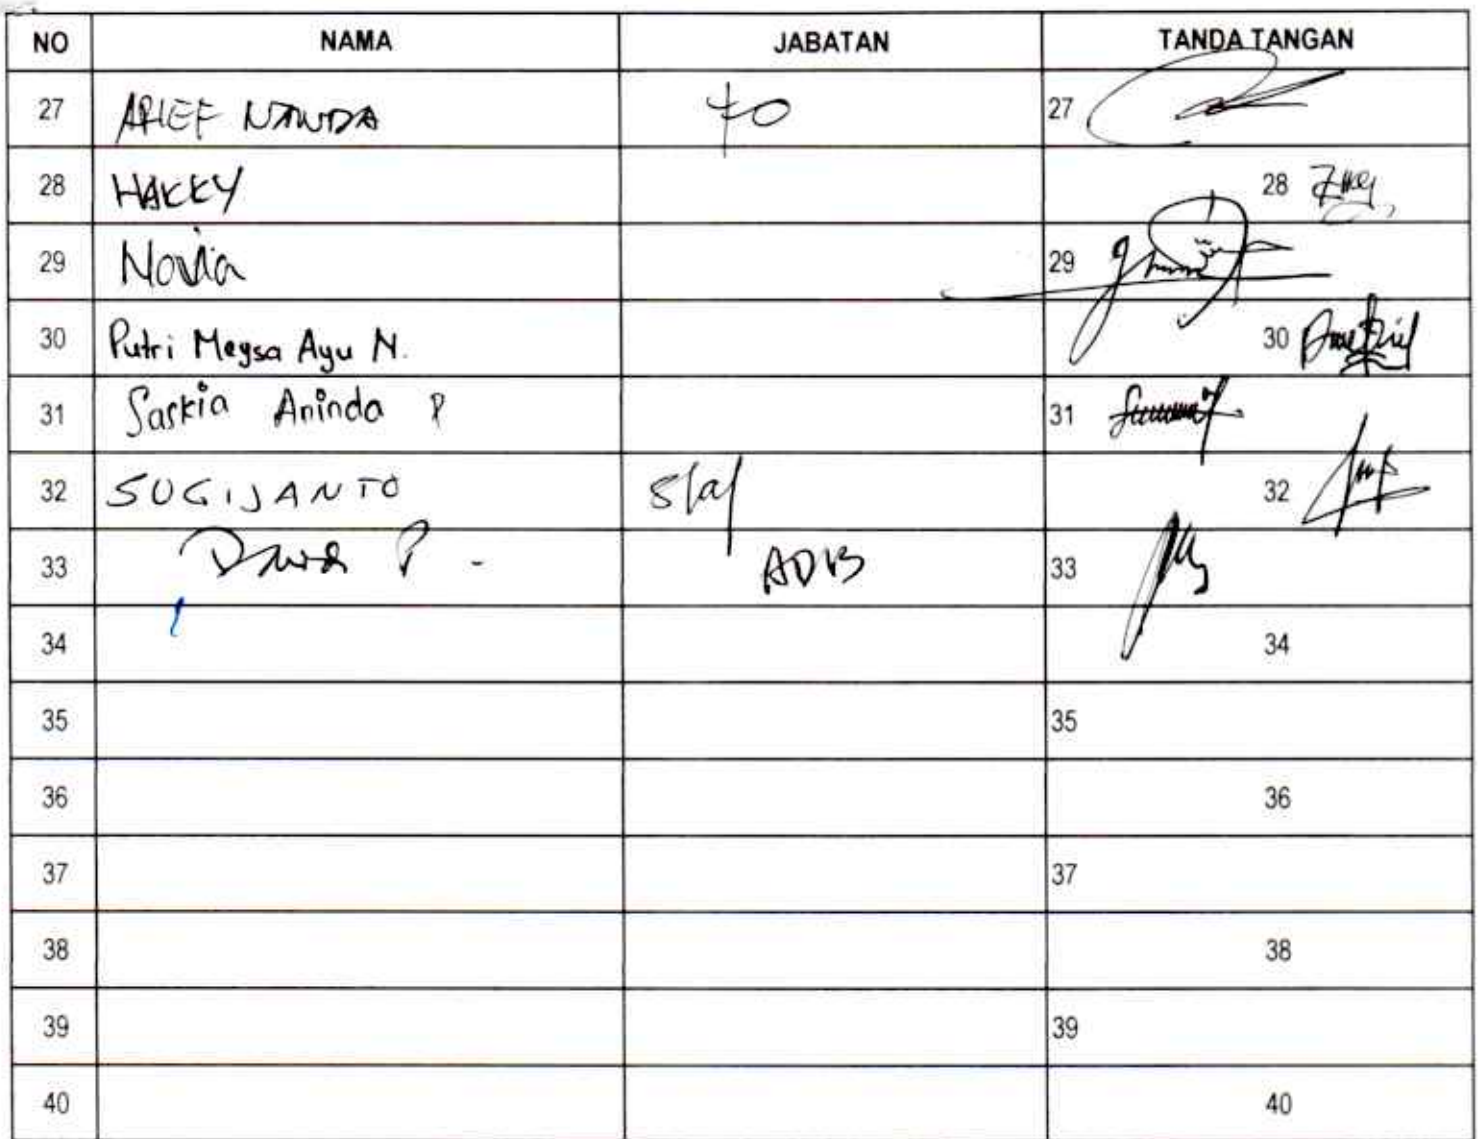 NO NAMA JABATAN TANDA TANGAN
27 ARIEF NANDA 27
28 HAKKY 28
29 Novia 29
30 Putri Meysa Ayu N. 30
31 Saskia Aninda P 31
32 SUGIJANTO Staf 32
33 P - 33
34 34
35 35
36 36
37 37
38 38
39 39
40 40